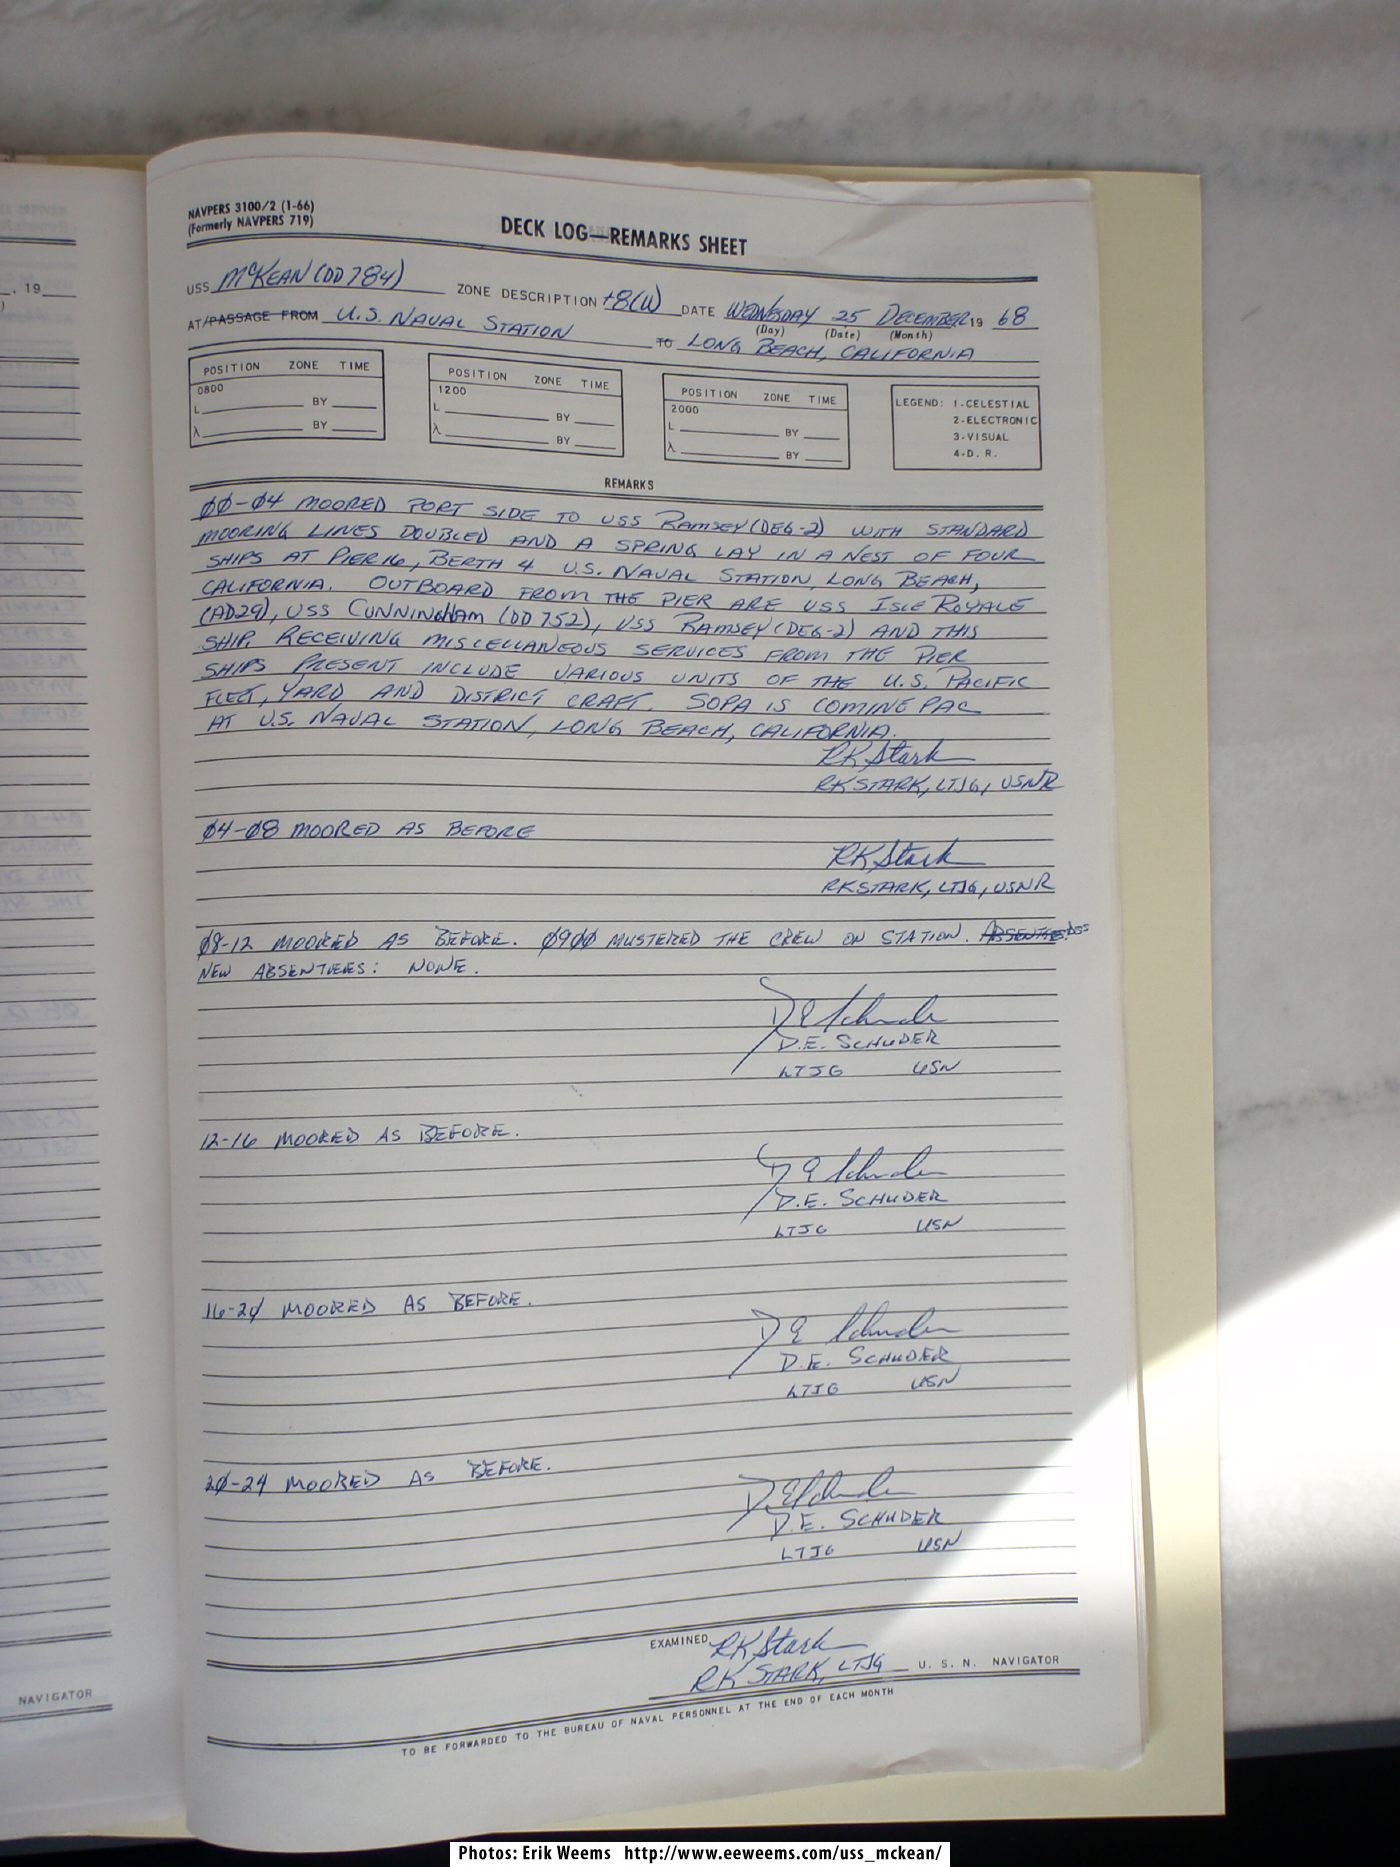 NAVPERS 3100/2 (1-66)
(Formerly NAVPERS 719)
DECK LOG—REMARKS SHEET
USS McKEAN (DD 784) ZONE DESCRIPTION +8(U) DATE WEDNESDAY 25 DECEMBER 19 68
(Day) (Date) (Month)
AT/PASSAGE FROM U.S. NAVAL STATION TO LONG BEACH, CALIFORNIA
POSITION ZONE TIME
0800
L BY
λ BY
POSITION ZONE TIME
1200
L BY
λ BY
POSITION ZONE TIME
2000
L BY
λ BY
LEGEND: 1-CELESTIAL
2-ELECTRONIC
3-VISUAL
4-D. R.
REMARKS
00-04 MOORED PORT SIDE TO USS RAMSEY (DEG-2) WITH STANDARD
MOORING LINES DOUBLED AND A SPRING LAY IN A NEST OF FOUR
SHIPS AT PIER 16, BERTH 4 U.S. NAVAL STATION, LONG BEACH,
CALIFORNIA. OUTBOARD FROM THE PIER ARE USS ISLE ROYALE
(AD29), USS CUNNINGHAM (DD 752), USS RAMSEY (DEG-2) AND THIS
SHIP. RECEIVING MISCELLANEOUS SERVICES FROM THE PIER
SHIPS PRESENT INCLUDE VARIOUS UNITS OF THE U.S. PACIFIC
FLEET, YARD AND DISTRICT CRAFT. SOPA IS COMINEPAC
AT U.S. NAVAL STATION, LONG BEACH, CALIFORNIA.
RK Stark
RK STARK, LTJG, USNR
04-08 MOORED AS BEFORE
RK Stark
RK STARK, LTJG, USNR
08-12 MOORED AS BEFORE. 0900 MUSTERED THE CREW ON STATION. ABSENTEES:
NEW ABSENTEES: NONE.
D E Schuder
D.E. SCHUDER
LTJG USN
12-16 MOORED AS BEFORE.
D E Schuder
D.E. SCHUDER
LTJG USN
16-20 MOORED AS BEFORE.
D E Schuder
D.E. SCHUDER
LTJG USN
20-24 MOORED AS BEFORE.
D E Schuder
D.E. SCHUDER
LTJG USN
EXAMINED RK Stark
RK STARK, LTJG U. S. N. NAVIGATOR
TO BE FORWARDED TO THE BUREAU OF NAVAL PERSONNEL AT THE END OF EACH MONTH
, 19
NAVIGATOR
Photos: Erik Weems http://www.eeweems.com/uss_mckean/